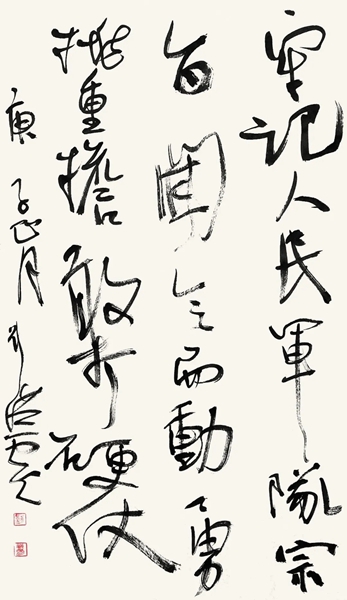 牢記人民軍隊宗
旨聞令而動勇
挑重擔敢打硬仗
庚子正月